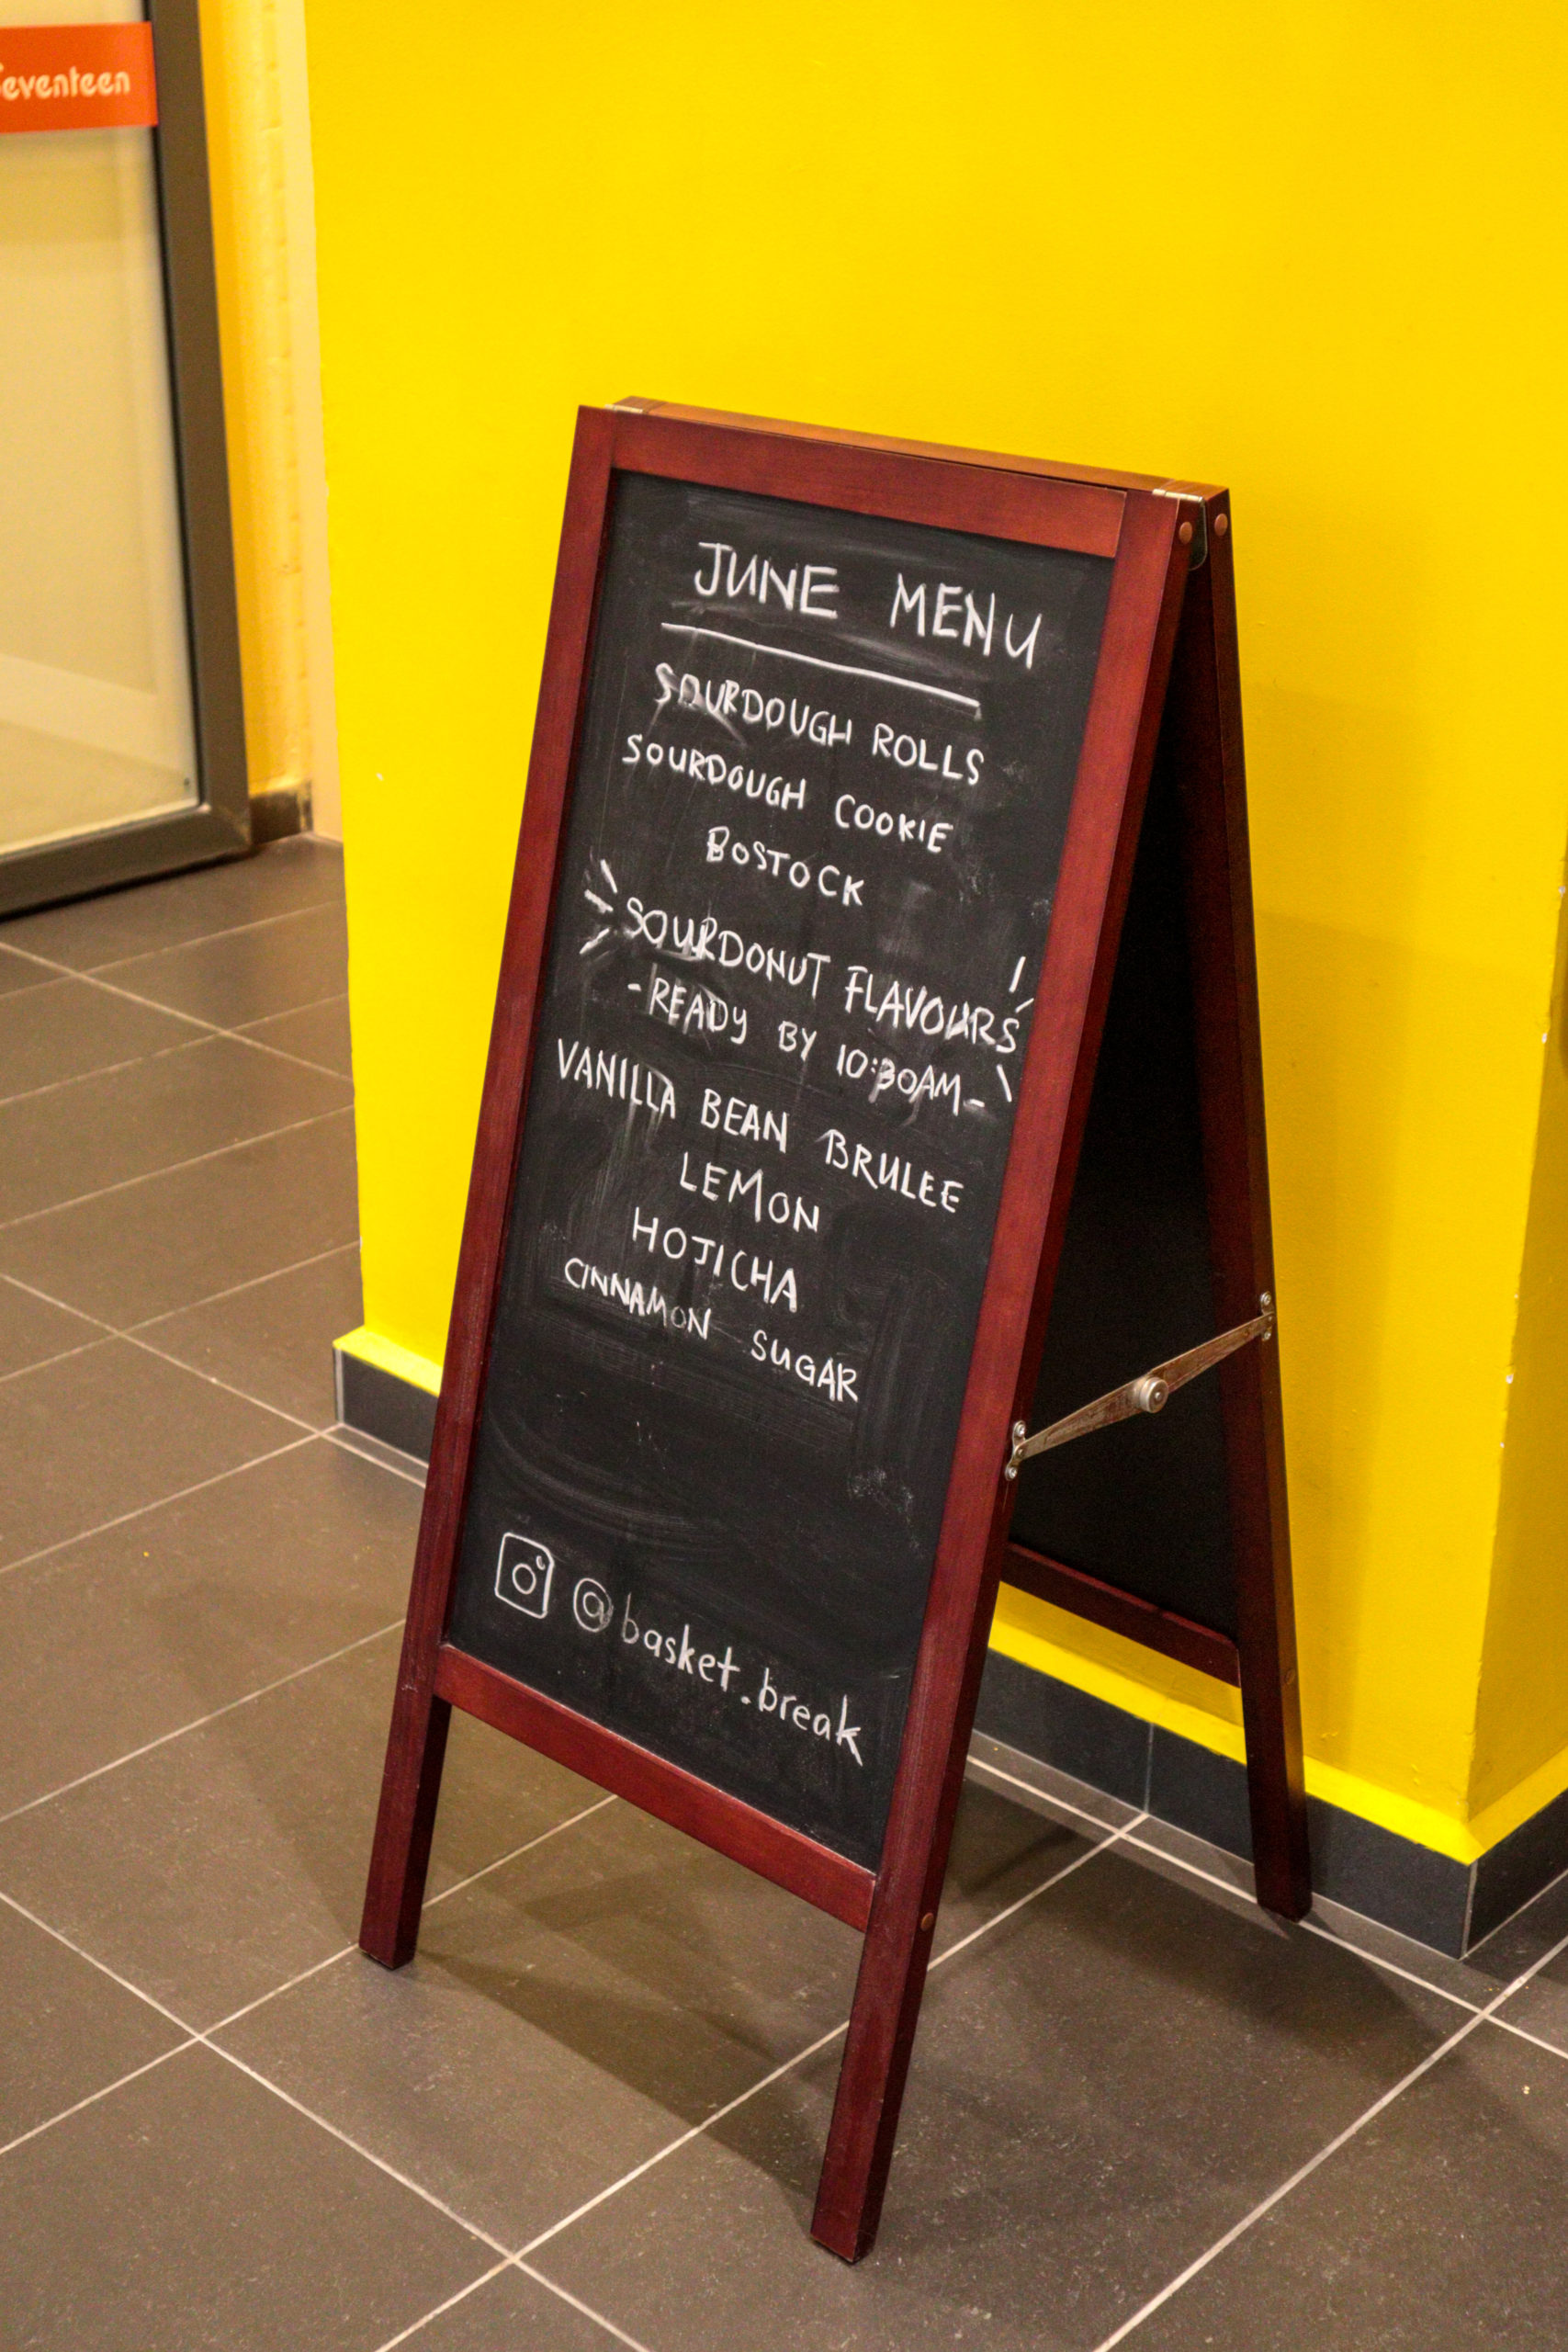 Seventeen
JUNE MENU
SOURDOUGH ROLLS
SOURDOUGH COOKIE
BOSTOCK
SOURDONUT FLAVOURS
-READY BY 10:30AM-
VANILLA BEAN BRULEE
LEMON
HOJICHA
CINNAMON SUGAR
@basket.break